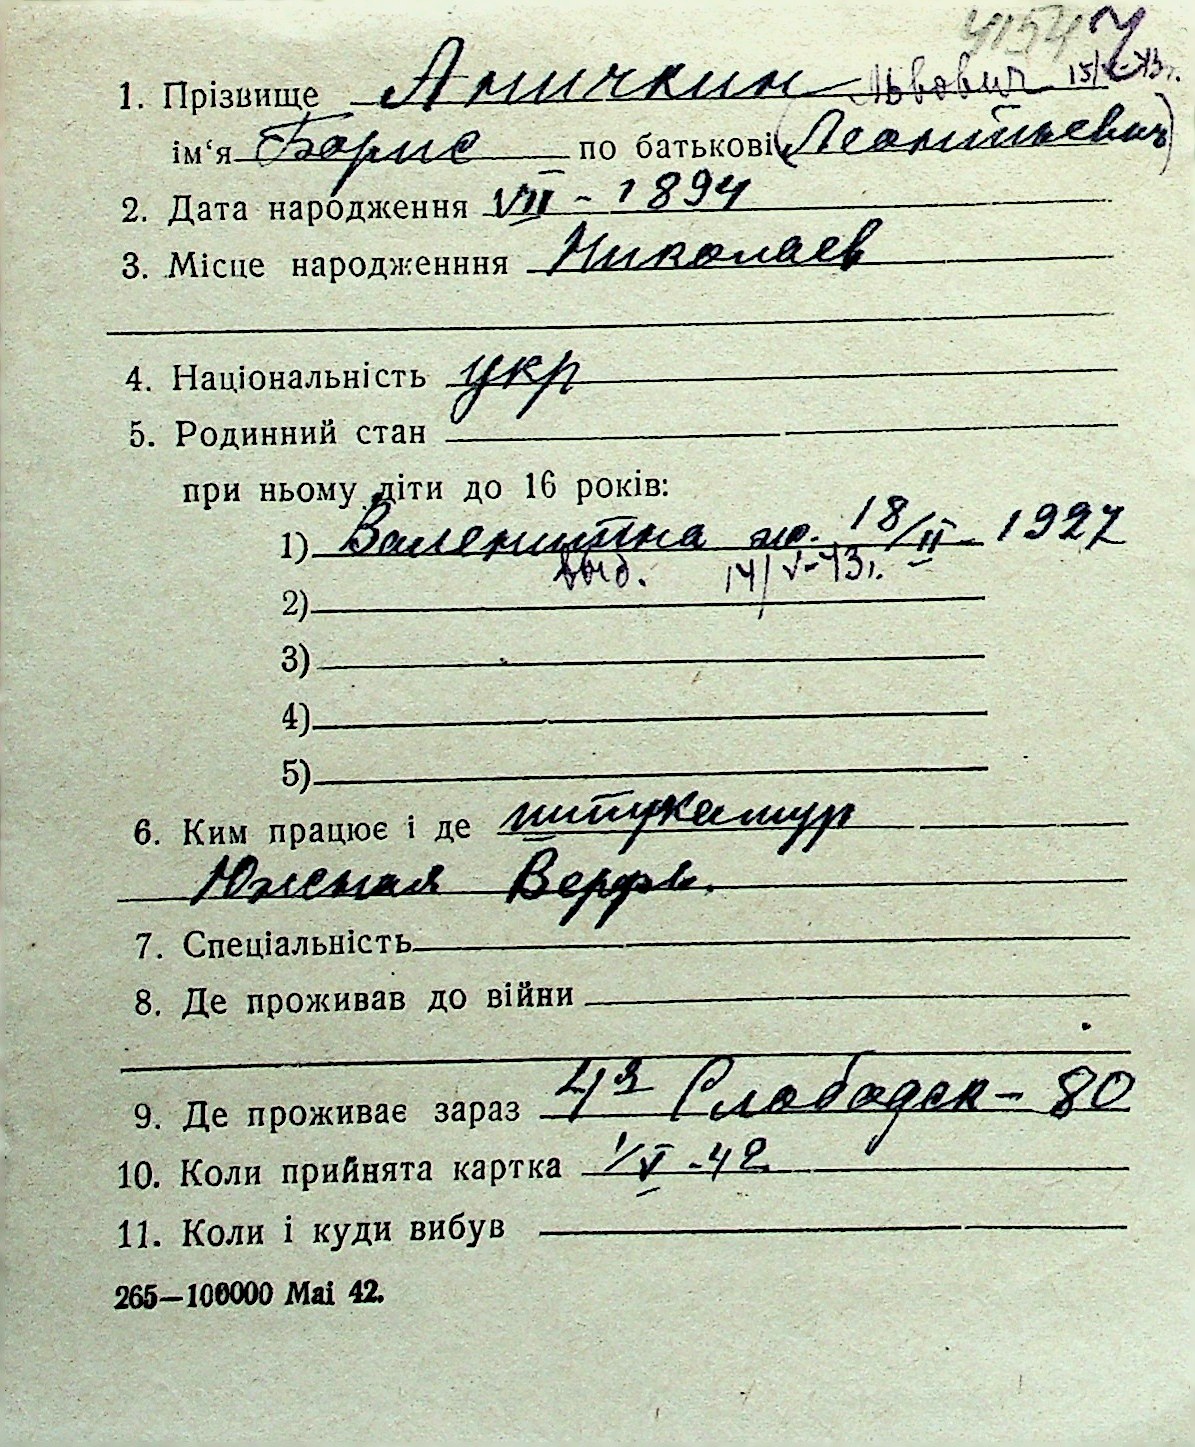 41547
1. Прізвище Аничкин Львович 15/V-43г.
ім‘я Борис по батькові (Леонтьевич)
2. Дата народження VII - 1894
3. Місце народженння Николаев
4. Національність укр
5. Родинний стан
при ньому діти до 16 років:
1) Валентина ж. 18/II - 1927
выд. 14/V-43г.
2)
3)
4)
5)
6. Ким працює і де штукатур
Южная Верфь.
7. Спеціальність
8. Де проживав до війни
9. Де проживає зараз 4я Слободск - 80
10. Коли прийнята картка 1/V-42
11. Коли і куди вибув
265—100000 Mai 42.